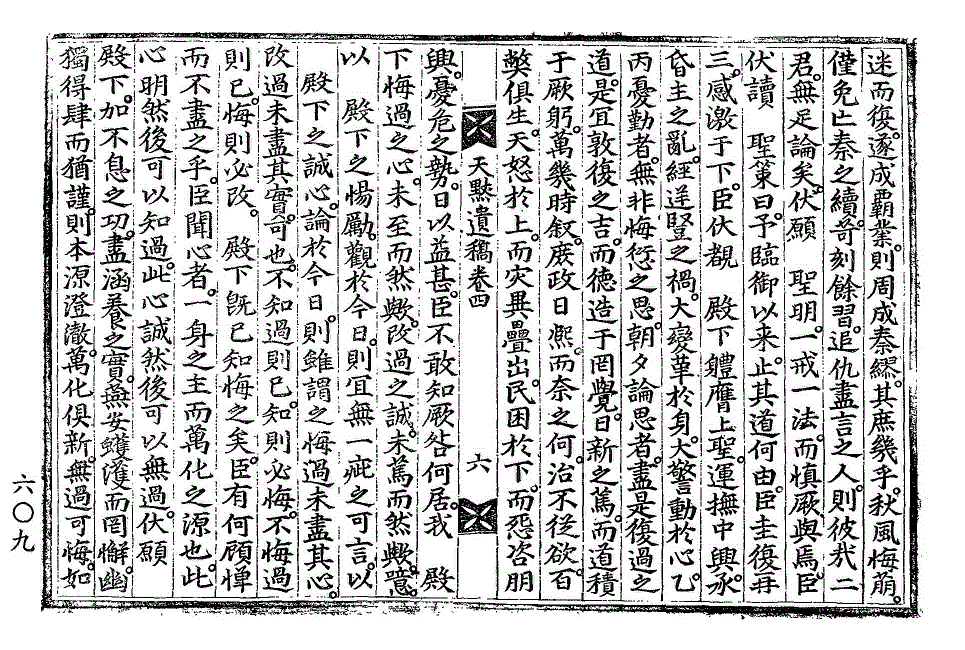 迷而復。遂成覇業。則周成秦繆。其庶幾乎。秋風悔萠。
僅免亡秦之續。苛刻餘習。追仇盡言之人。則彼㢤二
君。無足論矣。伏願 聖明。一戒一法。而愼厥與焉。臣
伏讀 聖策曰。予臨御以來。止其道何由。臣圭復再
三。感激于下。臣伏覩 殿下軆膺上聖。運撫中興。承
昏主之亂。經逆竪之禍。大變革於身。大警動於心。乙
丙憂勤者。無非悔愆之思。朝夕論思者。盡是復過之
道。是宜敦復之吉。而德造于罔覺。日新之篤。而道積
于厥躬。萬幾時叙。庶政日煕。而奈之何。治不從欲。百
弊俱生。天怒於上。而灾異疊出。民困於下。而怨咨朋
天默遺稿卷四 六
興。憂危之勢。日以益甚。臣不敢知厥咎何居。我 殿
下悔過之心。未至而然歟。改過之誠。未篤而然歟。噫。
以 殿下之惕勵。觀於今日。則宜無一疵之可言。以
殿下之誠心。論於今日。則雖謂之悔過未盡其心。
改過未盡其實。可也。不知過則已。知則必悔。不悔過
則已。悔則必改。 殿下旣已知悔之矣。臣有何顧憚
而不盡之乎。臣聞心者。一身之主而萬化之源也。此
心明然後可以知過。此心誠然後可以無過。伏願
殿下。加不息之功。盡涵養之實。燕安頀濩而罔懈。幽
獨得肆而猶謹。則本源澄澈。萬化俱新。無過可悔。如
六〇九